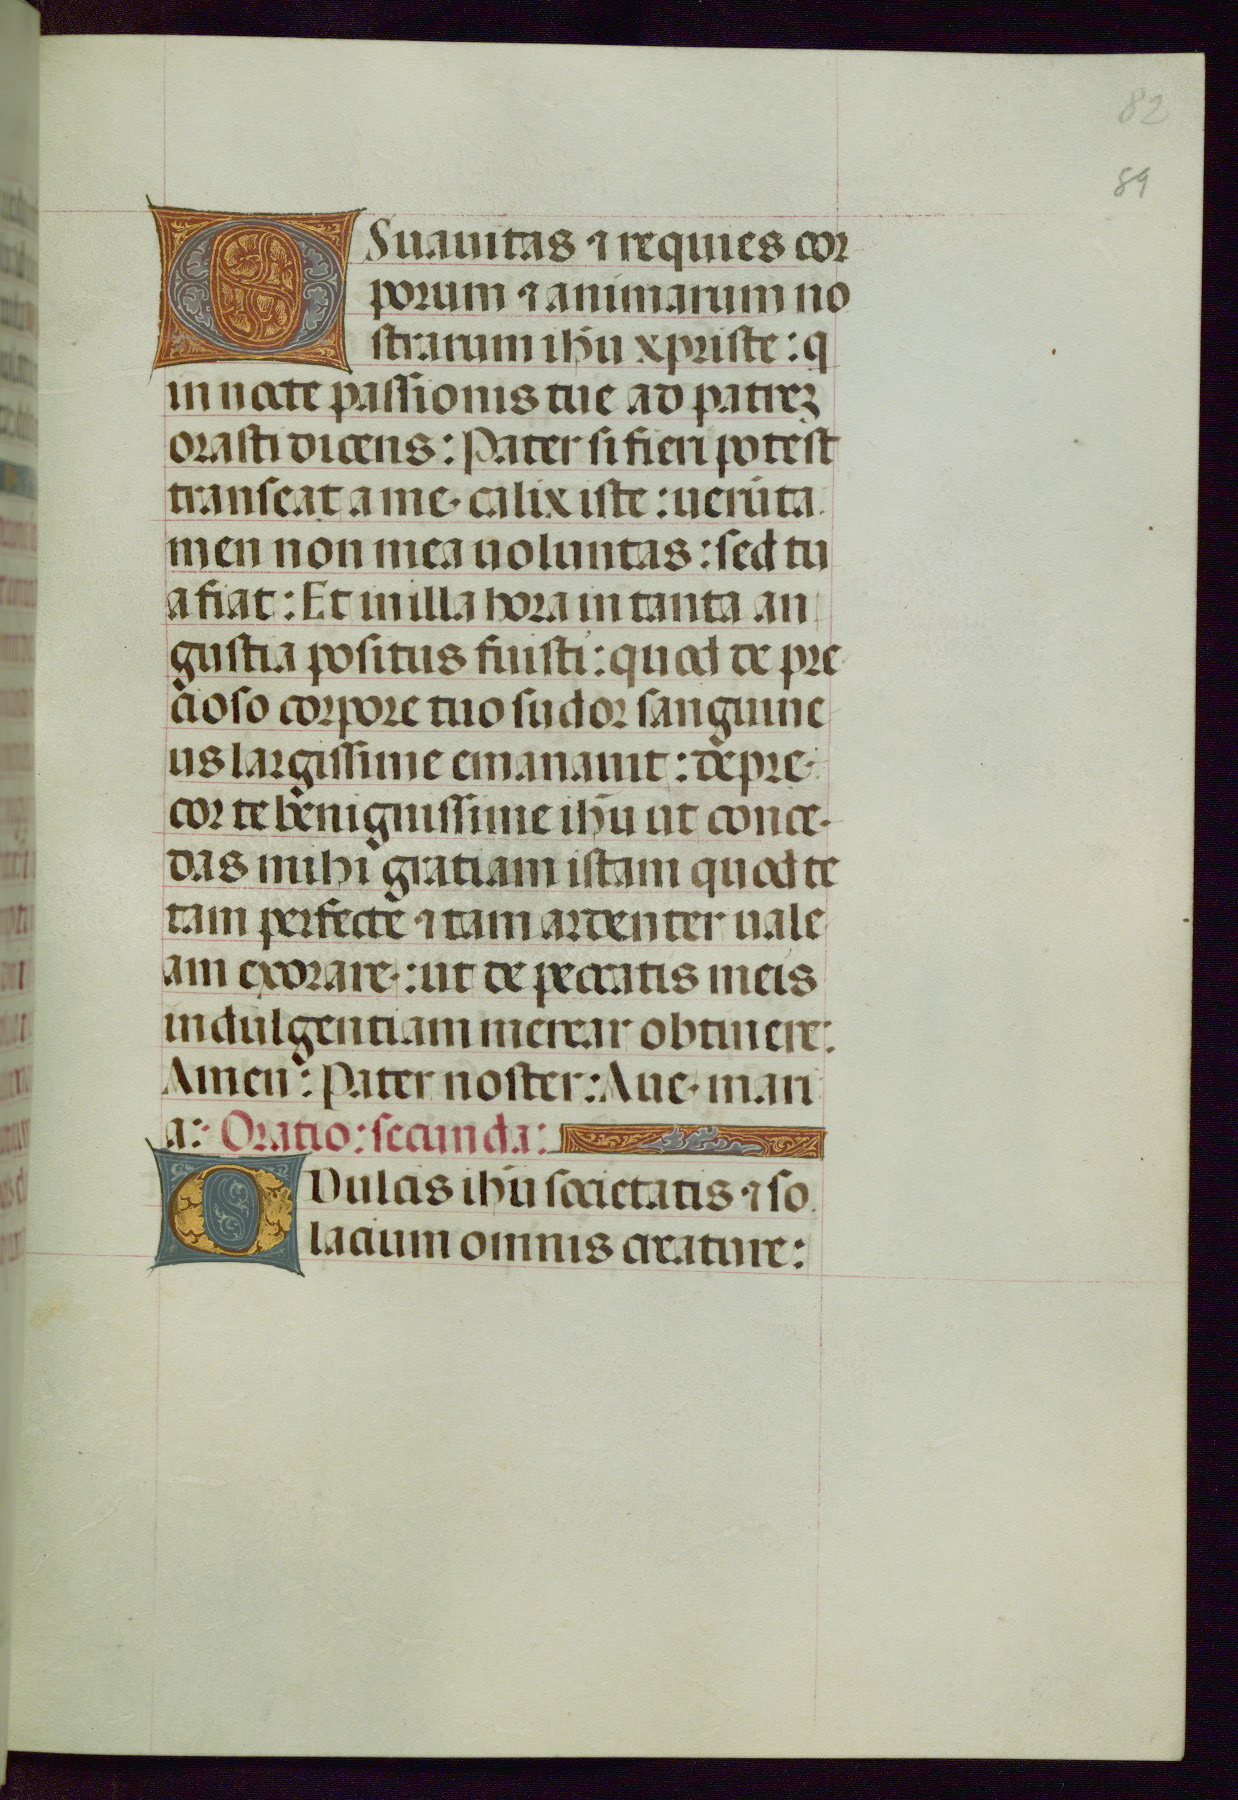 82
89
O Suauitas ⁊ requies cor
porum ⁊ animarum no
strarum ihū xpriste : q
in nocte passionis tue ad patreȝ
orasti dicens : Pater si fieri potest
transeat a me calix iste : uerūta
men non mea uoluntas : sed tu
a fiat : Et in illa hora in tanta an
gustia positus fuisti : quod de pre
cioso corpore tuo sudor sanguine
us largissime emanauit : depre
cor te benignissime ihū ut conce-
das mihi gratiam istam quod te
tam perfecte ⁊ tam ardenter uale
am exorare : ut de peccatis meis
indulgentiam merear obtinere :
Amen : Pater noster : Aue mari
a : Oratio : secunda :
O Dulcis ihū societatis ⁊ so
lacium omnis creature :